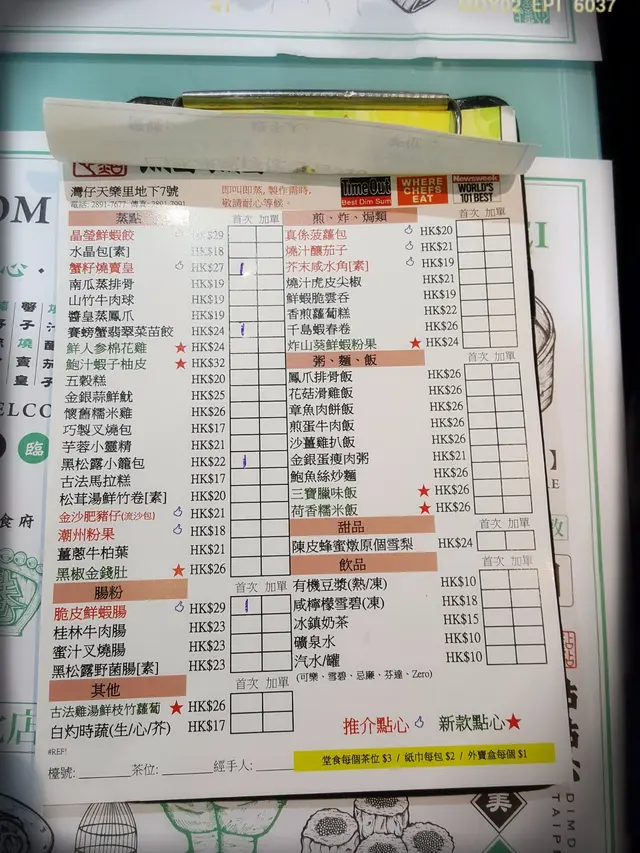 MDY02 EPT 6037
灣仔天樂里地下7號
電話: 2891-7677 傳真: 2891-7991
即叫即蒸, 製作需時,
敬請耐心等候。
TimeOut
Best Dim Sum
WHERE
CHEFS
EAT
Newsweek
WORLD'S
101 BEST
蒸點 首次 加單
晶瑩鮮蝦餃 HK$27
水晶包[素] HK$18
蟹籽燒賣皇 HK$27
南瓜蒸排骨 HK$19
山竹牛肉球 HK$19
醬皇蒸鳳爪 HK$19
賽螃蟹翡翠菜苗餃 HK$24
鮮人參棉花雞 ★ HK$24
鮑汁蝦子柚皮 ★ HK$32
五穀糕 HK$20
金銀蒜鮮魷 HK$25
懷舊糯米雞 HK$26
巧製叉燒包 HK$17
芋蓉小靈精 HK$21
黑松露小籠包 HK$22
古法馬拉糕 HK$17
松茸湯鮮竹卷[素] HK$20
金沙肥豬仔(流沙包) HK$21
潮州粉果 HK$18
薑蔥牛柏葉 HK$21
黑椒金錢肚 ★ HK$26
腸粉 首次 加單
脆皮鮮蝦腸 HK$29
桂林牛肉腸 HK$23
蜜汁叉燒腸 HK$23
黑松露野菌腸[素] HK$23
其他 首次 加單
古法雞湯鮮枝竹蘿蔔 ★ HK$26
白灼時蔬(生/心/芥) HK$17
#REF!
檯號: 茶位: 經手人:
煎、炸、焗類 首次 加單
真係菠蘿包 HK$20
燒汁釀茄子 HK$21
芥末咸水角[素] HK$19
燒汁虎皮尖椒 HK$21
鮮蝦脆雲吞 HK$19
香煎蘿蔔糕 HK$22
千島蝦春卷 HK$26
炸山葵鮮蝦粉果 ★ HK$24
粥、麵、飯 首次 加單
鳳爪排骨飯 HK$26
花菇滑雞飯 HK$26
章魚肉餅飯 HK$26
煎蛋牛肉飯 HK$26
沙薑雞扒飯 HK$26
金銀蛋瘦肉粥 HK$21
鮑魚絲炒麵 HK$26
三寶臘味飯 ★ HK$26
荷香糯米飯 ★ HK$26
甜品 首次 加單
陳皮蜂蜜燉原個雪梨 HK$24
飲品 首次 加單
有機豆漿(熱/凍) HK$10
咸檸檬雪碧(凍) HK$18
冰鎮奶茶 HK$15
礦泉水 HK$10
汽水/罐 HK$10
(可樂、雪碧、忌廉、芬達、Zero)
推介點心 新款點心★
堂食每個茶位 $3 / 紙巾每包 $2 / 外賣盒每個 $1